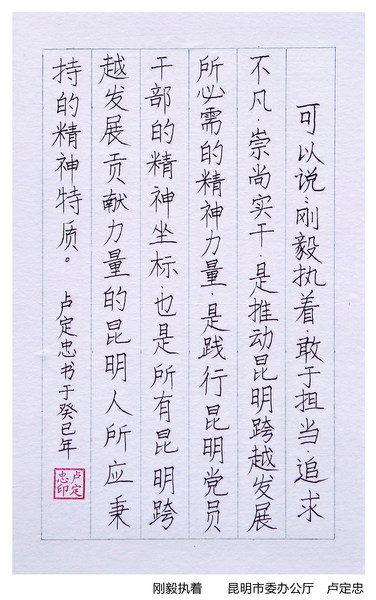 可以说，刚毅执着，敢于担当，追求
不凡，崇尚实干，是推动昆明跨越发展
所必需的精神力量，是践行昆明党员
干部的精神坐标，也是所有昆明跨
越发展贡献力量的昆明人所应秉
持的精神特质。
卢定忠书于癸巳年
卢定
忠印
刚毅执着 昆明市委办公厅 卢定忠